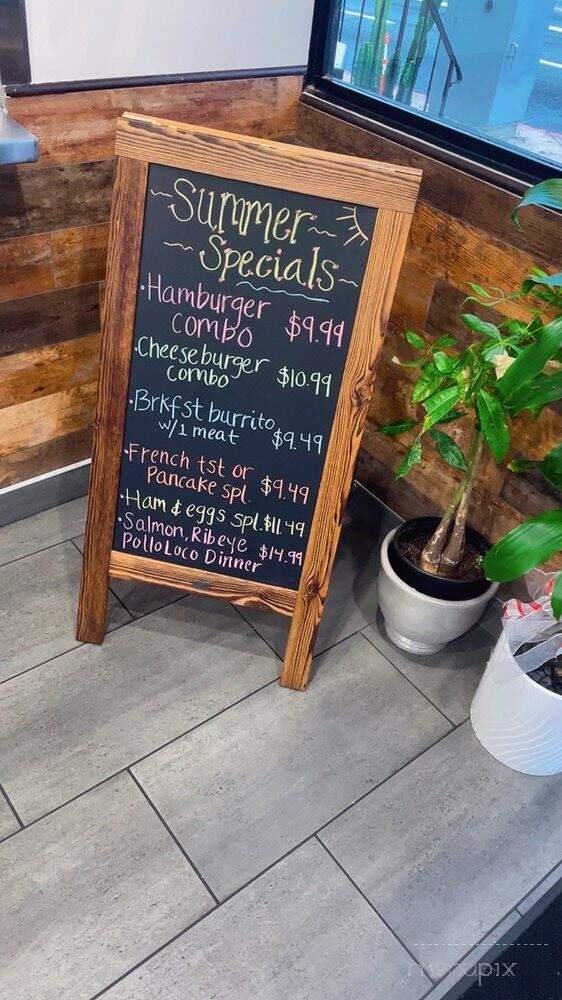 ~Summer~
~Specials~
·Hamburger
combo $9.99
·Cheeseburger
combo $10.99
·Brkfst burrito
w/1 meat $9.49
·French tst or
Pancake spl. $9.49
·Ham & eggs spl. $11.49
·Salmon, Ribeye
Pollo Loco Dinner $14.99
menupix